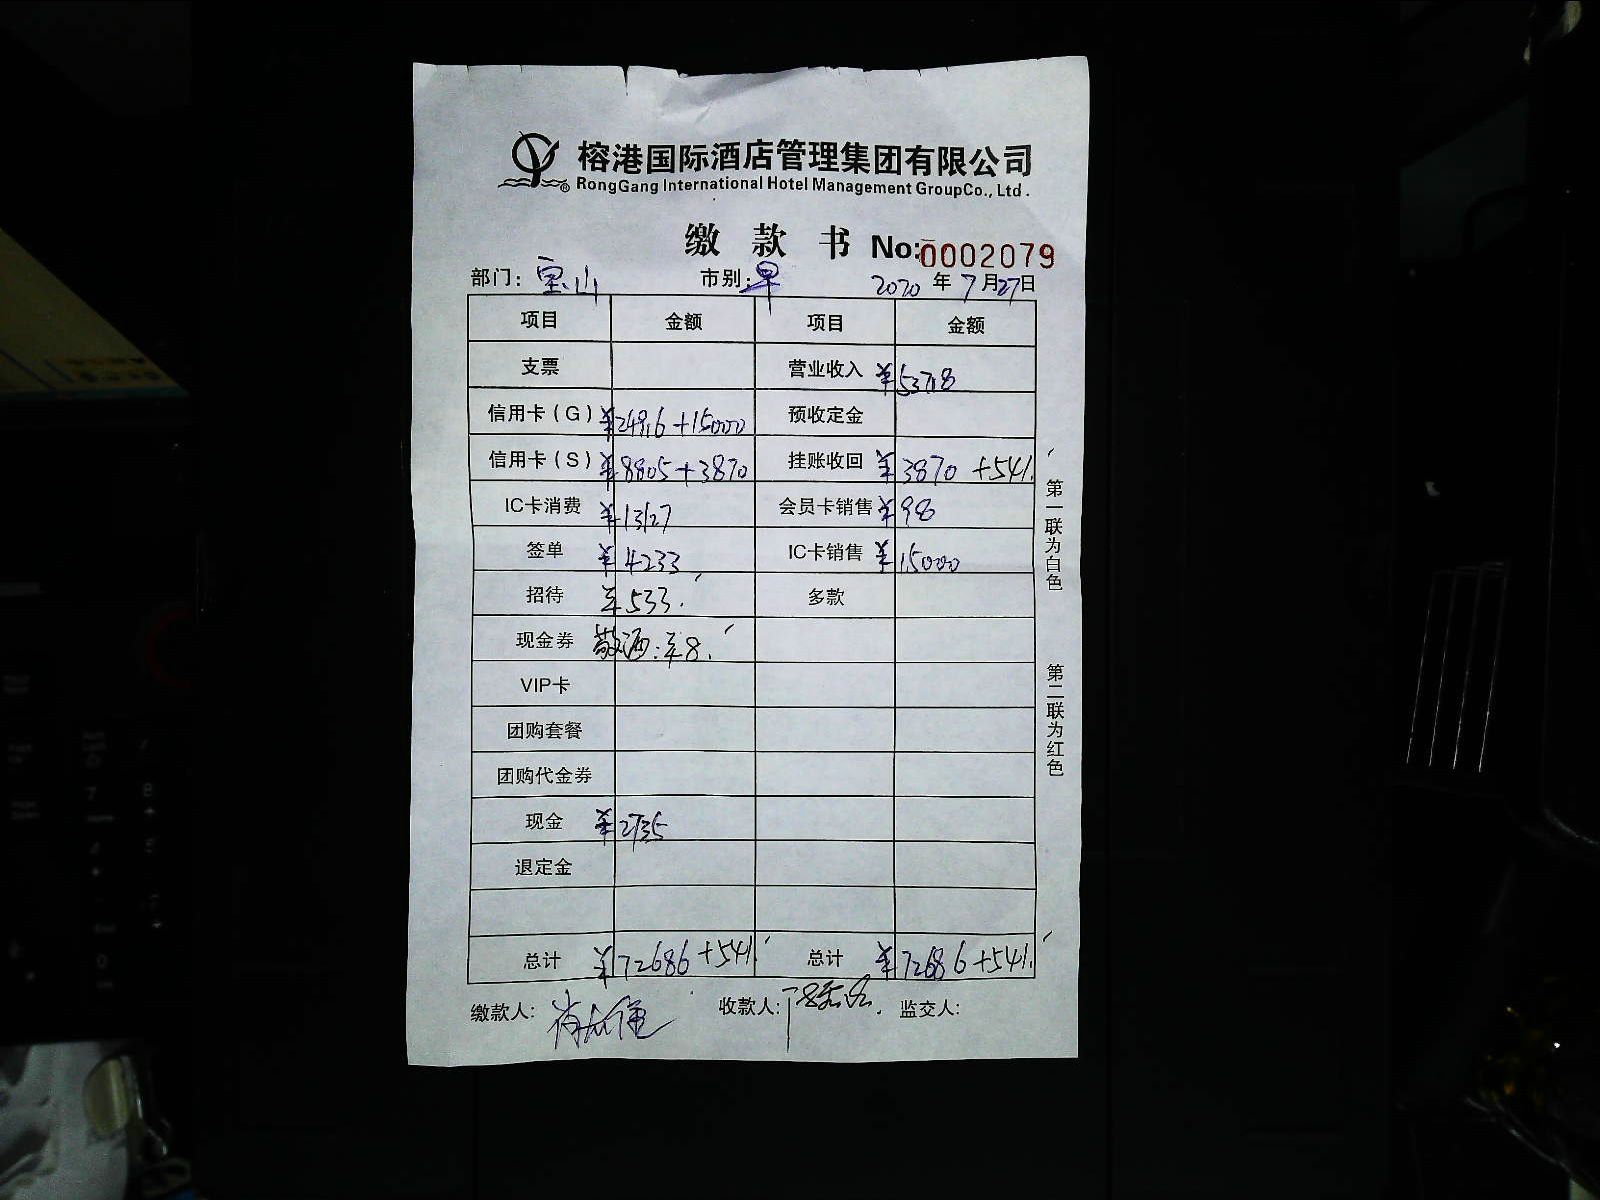 榕港国际酒店管理集团有限公司
RongGang International Hotel Management GroupCo., Ltd.
缴款书 No:0002079
部门: 宝山 市别: 早 2020 年 7 月 27 日
项目 金额 项目 金额
支票 营业收入 ¥53718
信用卡(G) ¥24916+15000 预收定金
信用卡(S) ¥8805+3870 挂账收回 ¥3870 +541.
IC卡消费 ¥13127 会员卡销售 ¥98
签单 ¥4233 IC卡销售 ¥15000
招待 ¥533. 多款
现金券 敬酒:¥8.
VIP卡
团购套餐
团购代金券
现金 ¥2735
退定金
总计 ¥72686+541. 总计 ¥72686+541.
缴款人: 收款人: 监交人:
第一联为白色
第二联为红色